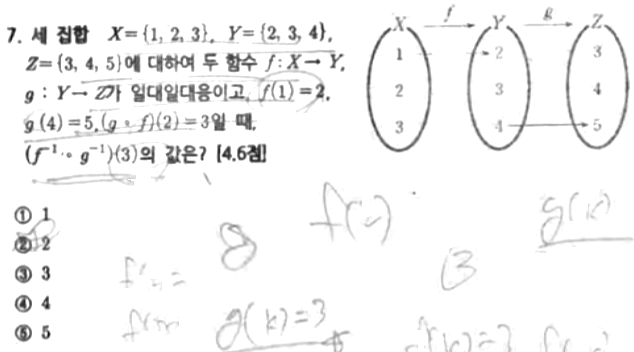 7. 세 집합 X={1, 2, 3}, Y={2, 3, 4},
Z={3, 4, 5}에 대하여 두 함수 f : X → Y,
g : Y → Z가 일대일대응이고, f(1)=2,
g(4)=5, (g∘f)(2)=3일 때,
(f⁻¹∘g⁻¹)(3)의 값은? [4.6점]
① 1
② 2
③ 3
④ 4
⑤ 5
X f Y g Z
1 2 3
2 3 4
3 4 5
g(k)
g(k)=3